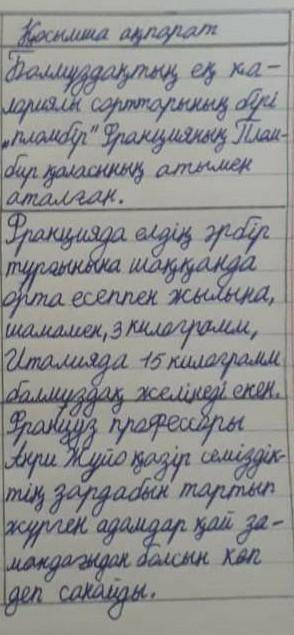 Қосымша ақпарат
Балмұздақтың ең ка-
лориялы сорттарының бірі
„пламбір" Францияның Плам-
бир қаласының атымен
аталған.
Францияда елдің әрбір
тұрғынына шаққанда
орта есеппен жылына,
шамамен, 3 килограмм,
Италияда 15 килограмм
балмұздақ желінеді екен.
Француз профессоры
Анри Жуйо қазір семіздік-
тің зардабын тартып
жүрген адамдар қай за-
мандағыдан болсын көп
деп санайды.